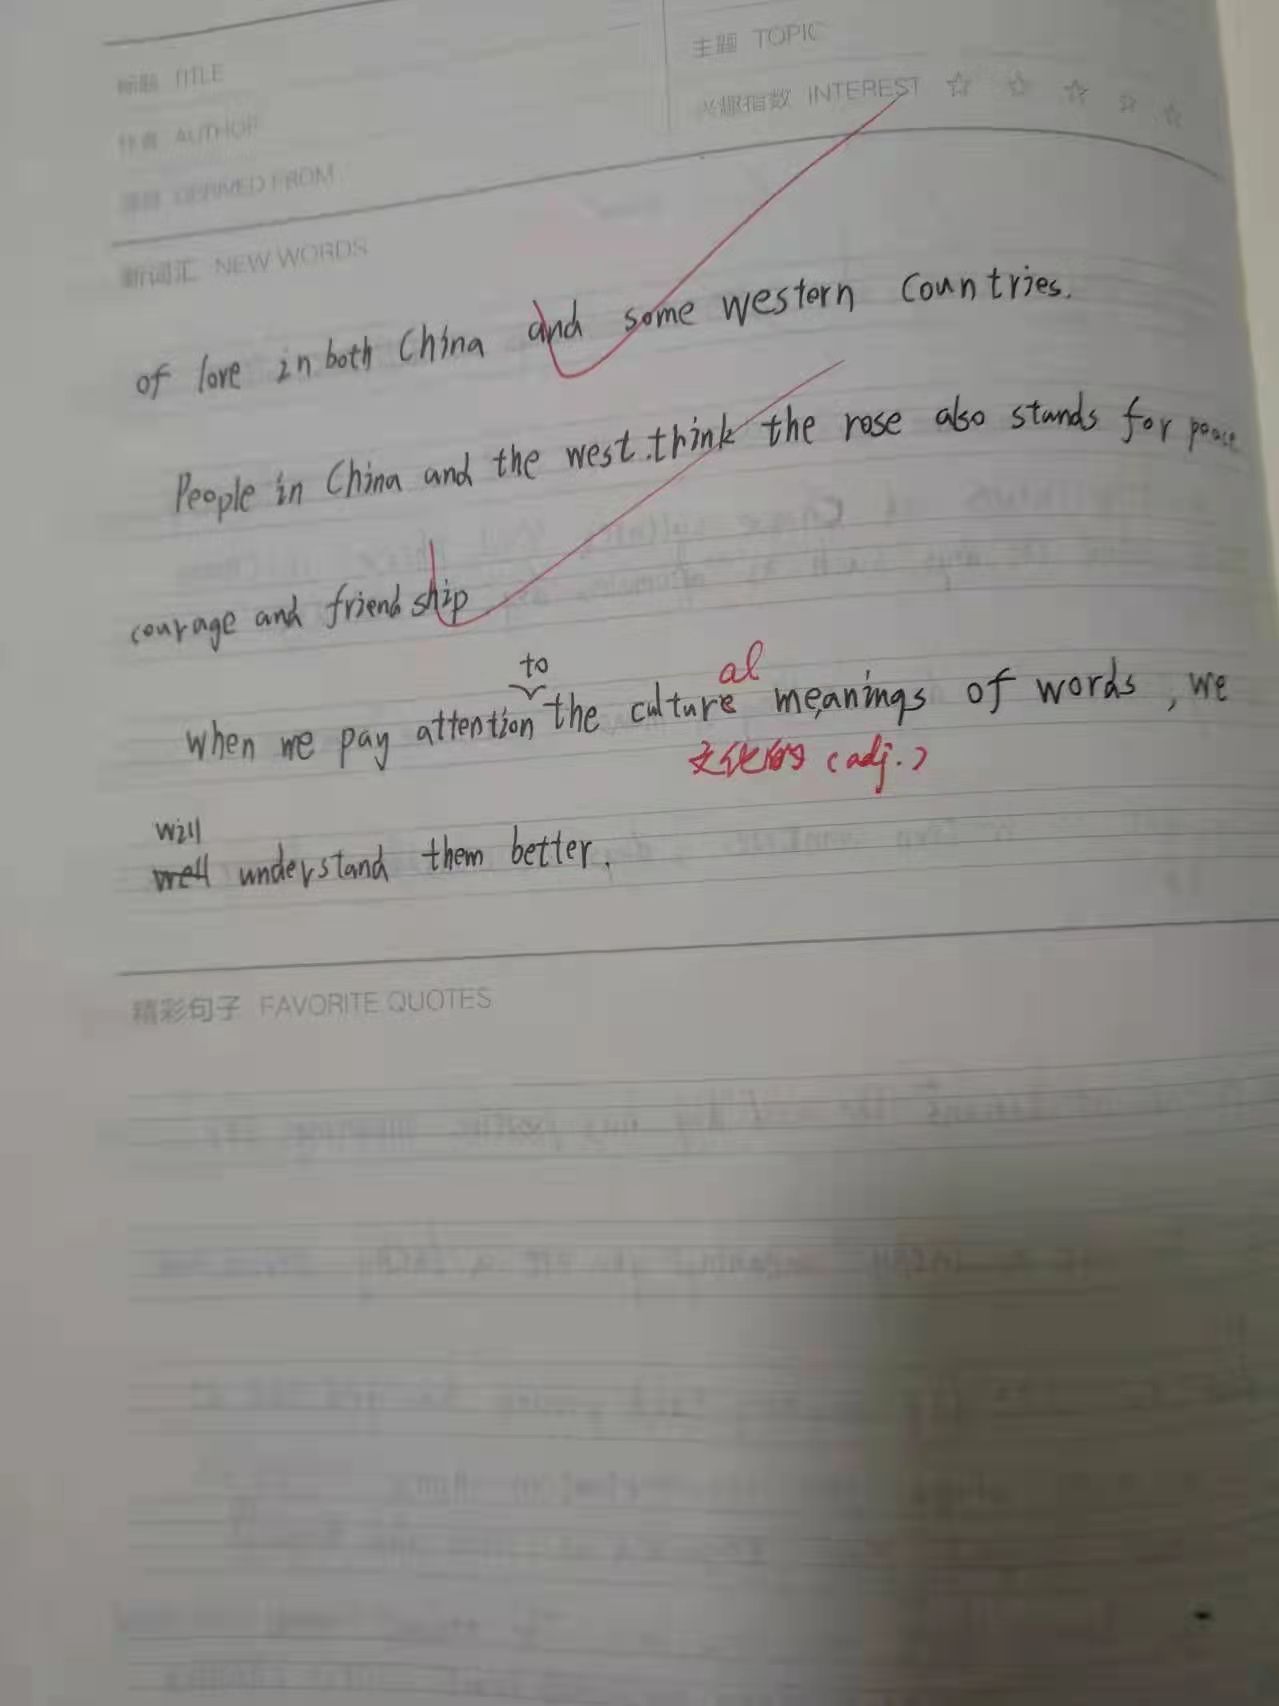 标题 TITLE
作者 AUTHOR
DERIVED FROM
主题 TOPIC
兴趣指数 INTEREST ☆ ☆ ☆ ☆ ☆
新词汇 NEW WORDS
of love in both China and some western countries.
People in China and the west think the rose also stands for peace
courage and friendship
to al
when we pay attention the culture meanings of words, we
文化的 (adj.)
will
well understand them better.
精彩句子 FAVORITE QUOTES